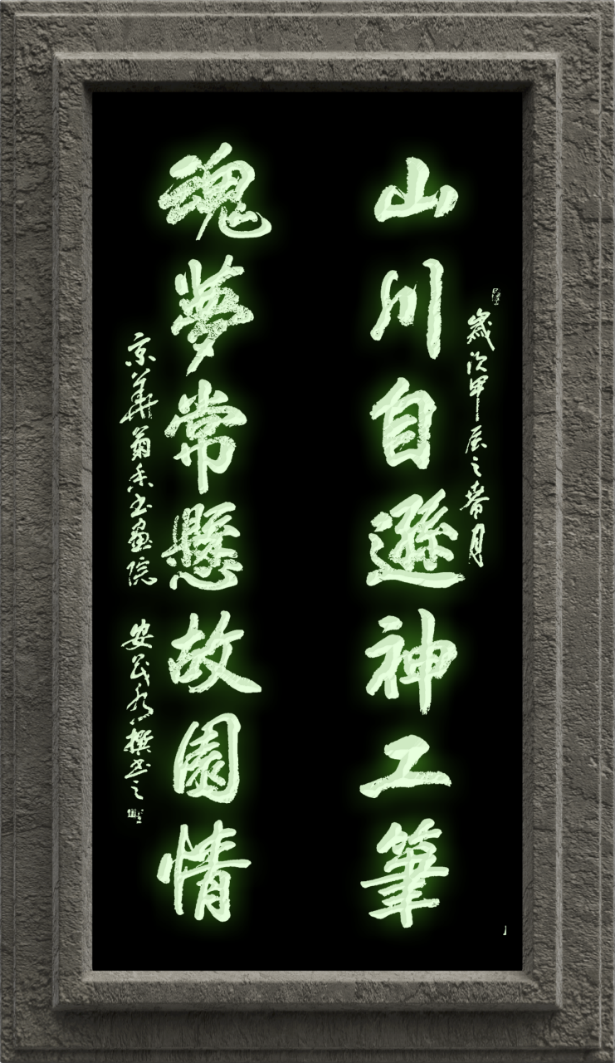 歲次甲辰之春月
山川自遜神工筆
魂夢常懸故園情
京華菊香書畫院
安民水撰書之